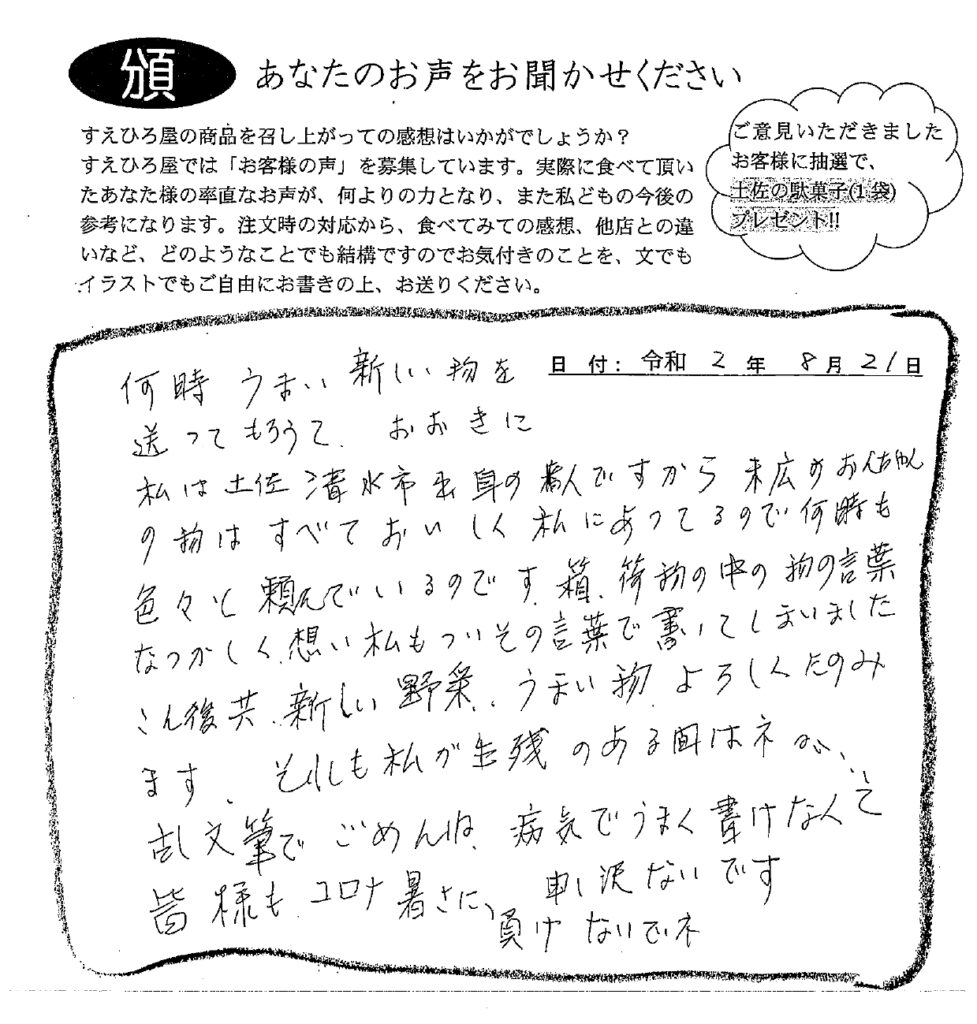 頒
あなたのお声をお聞かせください
すえひろ屋の商品を召し上がっての感想はいかがでしょうか？
すえひろ屋では「お客様の声」を募集しています。実際に食べて頂い
たあなた様の率直なお声が、何よりの力となり、また私どもの今後の
参考になります。注文時の対応から、食べてみての感想、他店との違
いなど、どのようなことでも結構ですのでお気付きのことを、文でも
イラストでもご自由にお書きの上、お送りください。
ご意見いただきました
お客様に抽選で、
土佐の駄菓子(1袋)
プレゼント!!
日 付: 令和 2 年 8月 21日
何時 うまい 新しい 物を
送ってもろうて、おおきに
私は土佐清水市出身の ですから 末広のおんちゃん
の物は すべて おいしく 私にあってるので 何時も
色々と 頼んでいるのです、箱、荷物の中の 物の言葉
なつかしく、想い 私もついその言葉で書いてしまいました
こん後共、新しい 野菜、うまい物、よろしくたのみ
ます、それも私が生残 のある間はネ
乱文筆で ごめんね、病気でうまく書けなんて
申し訳ないです
皆様も、コロナ 暑さに、負け ないでネ